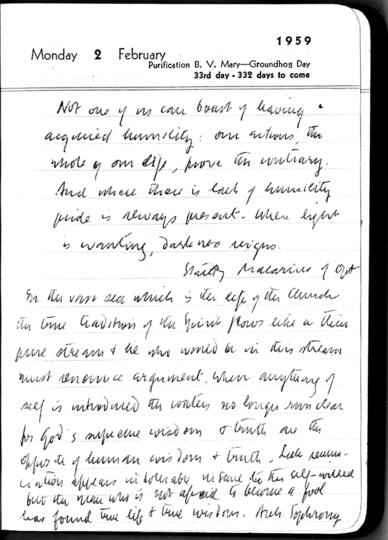 1959
Monday 2 February
Purification B. V. Mary—Groundhog Day
33rd day - 332 days to come
Not one of us can boast of having
acquired humility: our actions, the
whole of our life, prove the contrary.
And where there is lack of humility
pride is always present. Where light
is wanting, darkness reigns.
Staretz Macarius of Opt
In the vast sea which is the life of the Church
the true tradition of the Spirit flows like a thin
pure stream & he who would be in this stream
must renounce argument. When anything of
self is introduced the waters no longer run clear
for God's supreme wisdom & truth are the
opposite of human wisdom & truth. Such renun-
ciation appears intolerable, insane to the self-willed
but the man who is not afraid to become a fool
has found true life & true wisdom. Arch Sophrony